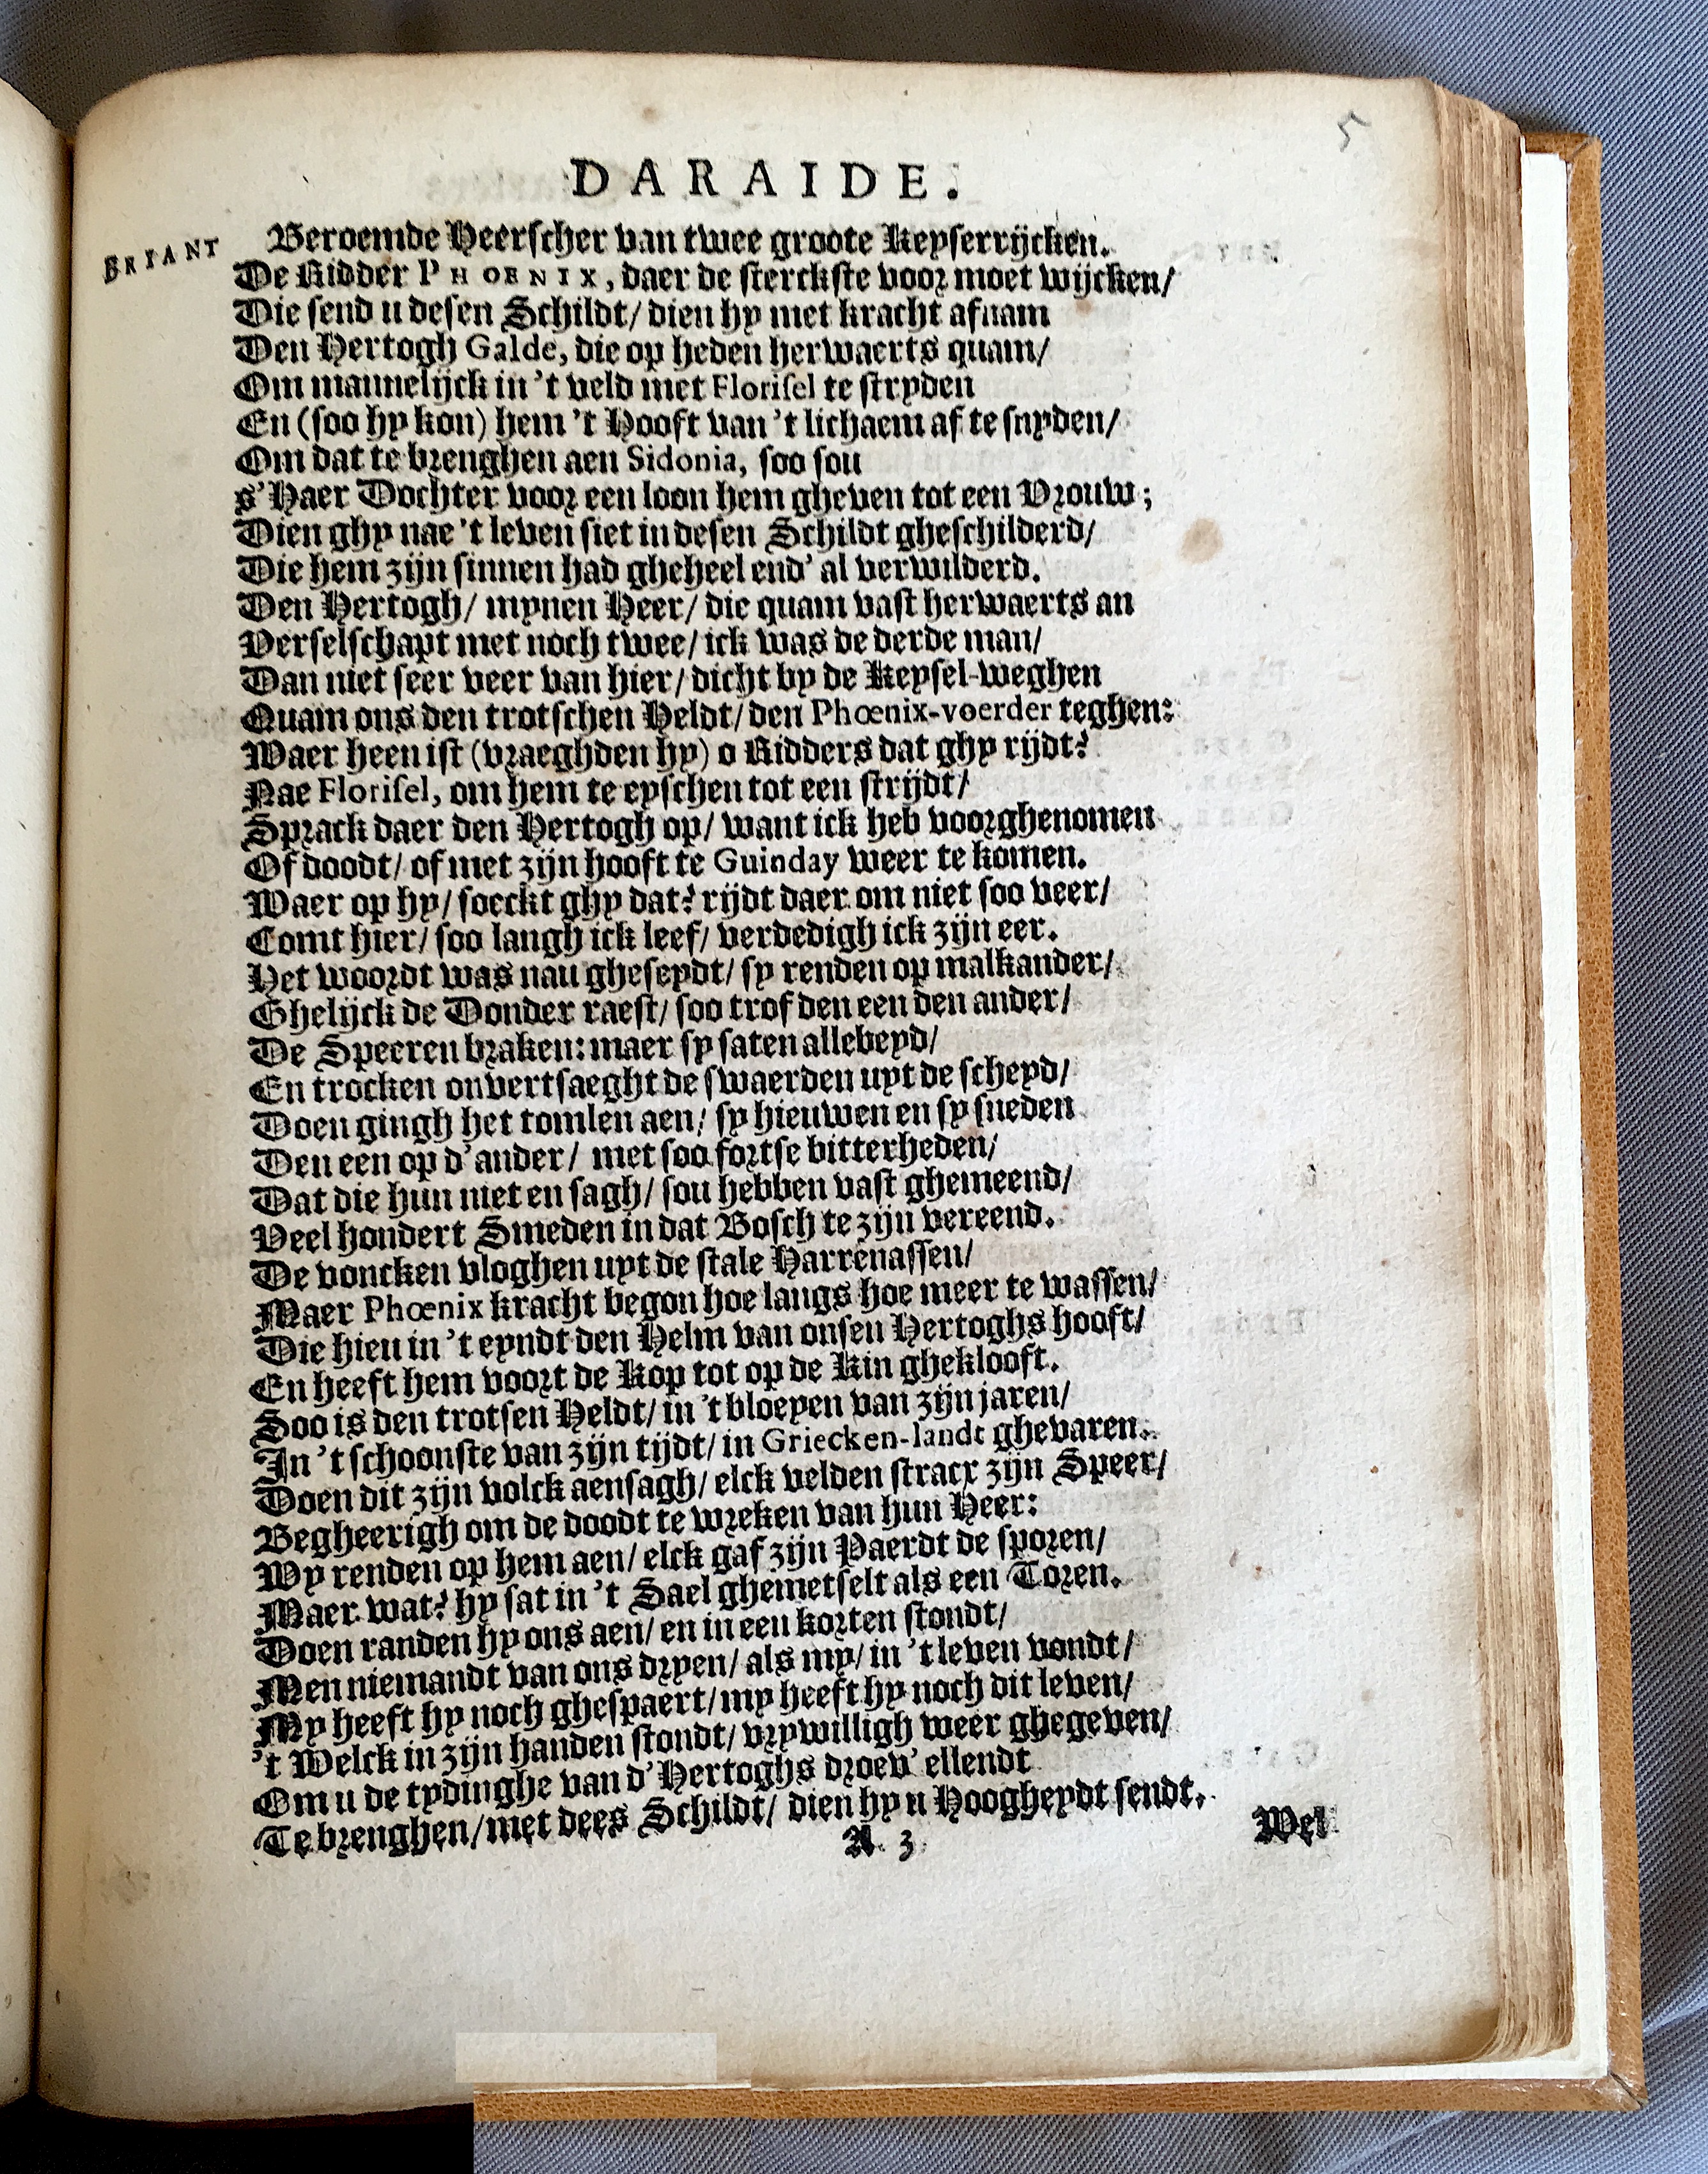 5
DARAIDE.
BRIANT Beroemde Heerscher van twee groote Keyserrijcken.
De Ridder PHOENIX, daer de sterckste voor moet wijcken/
Die send u desen Schildt/ dien hy met kracht afnam
Den Hertogh Galde, die op heden herwaerts quam/
Om mannelijck in 't veld met Florisel te stryden
En (soo hy kon) hem 't Hooft van 't lichaem af te snyden/
Om dat te brenghen aen Sidonia, soo sou
s'Haer Dochter voor een loon hem gheven tot een Vrouw;
Dien ghy nae 't leven siet in desen Schildt gheschilderd/
Die hem zijn sinnen had gheheel end' al verwilderd.
Den Hertogh/ mynen Heer/ die quam vast herwaerts an
Verselschapt met noch twee/ ick was de derde man/
Dan niet seer veer van hier/ dicht by de Keysel-weghen
Quam ons den trotschen Heldt/ den Phœnix-voerder teghen:
Waer heen ist (vraeghden hy) o Ridders dat ghy rijdt?
Nae Florisel, om hem te eyschen tot een strijdt/
Sprack daer den Hertogh op/ want ick heb voorghenomen
Of doodt/ of met zijn hooft te Guinday weer te komen.
Waer op hy/ soeckt ghy dat? rijdt daer om niet soo veer/
Comt hier/ soo langh ick leef/ verdedigh ick zijn eer.
Het woordt was nau gheseydt/ sy renden op malkander/
Ghelijck de Donder raest/ soo trof den een den ander/
De Speeren braken: maer sy saten allebeyd/
En trocken onvertsaeght de swaerden uyt de scheyd/
Doen gingh het tomlen aen/ sy hieuwen en sy sneden
Den een op d'ander/ met soo fortse bitterheden/
Dat die hun niet en sagh/ sou hebben vast ghemeend/
Veel hondert Smeden in dat Bosch te zijn vereend.
De voncken vloghen uyt de stale Harrenassen/
Maer Phœnix kracht begon hoe langs hoe meer te wassen/
Die hieu in 't eyndt den Helm van onsen Hertoghs hooft/
En heeft hem voort de Kop tot op de Kin gheklooft.
Soo is den trotsen Heldt/ in 't bloeyen van zijn jaren/
In 't schoonste van zijn tijdt/ in Griecken-landt ghevaren.
Doen dit zijn volck aensagh/ elck velden stracx zijn Speer/
Begheerigh om de doodt te wreken van hun Heer:
Wy renden op hem aen/ elck gaf zijn Paerdt de sporen/
Maer wat? hy sat in 't Sael ghemetselt als een Toren.
Doen randen hy ons aen/ en in een korten stondt/
Men niemandt van ons dryen/ als my/ in 't leven vondt/
My heeft hy noch ghespaert/ my heeft hy noch dit leven/
't Welck in zijn handen stondt/ vrywilligh weer ghegeven/
Om u de tydinghe van d'Hertoghs droev' ellendt
Te brenghen/ met dees Schildt/ dien hy u Hoogheydt sendt.
A 3 Wel